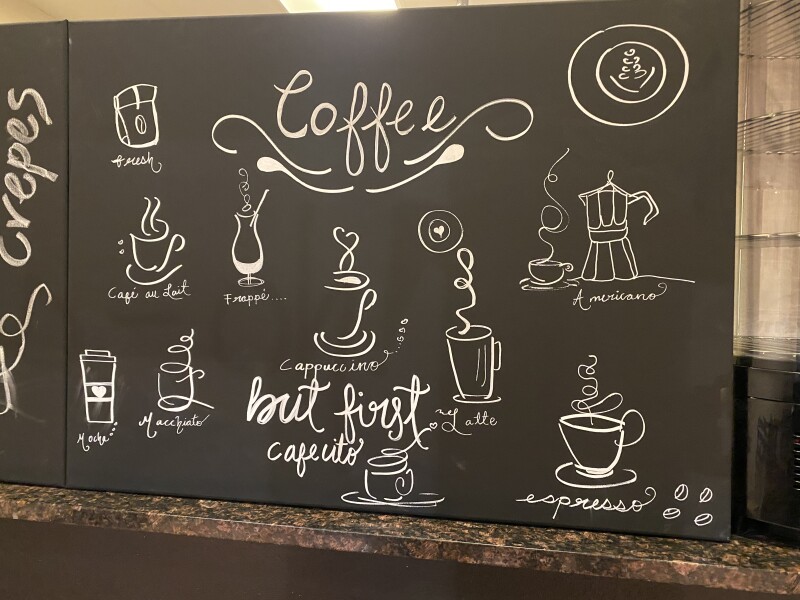 crepes
Coffee
fresh
Café au Lait
Frappé....
Americano
Cappuccino
Mocha
Macchiato
but first
cafecito
Latte
espresso